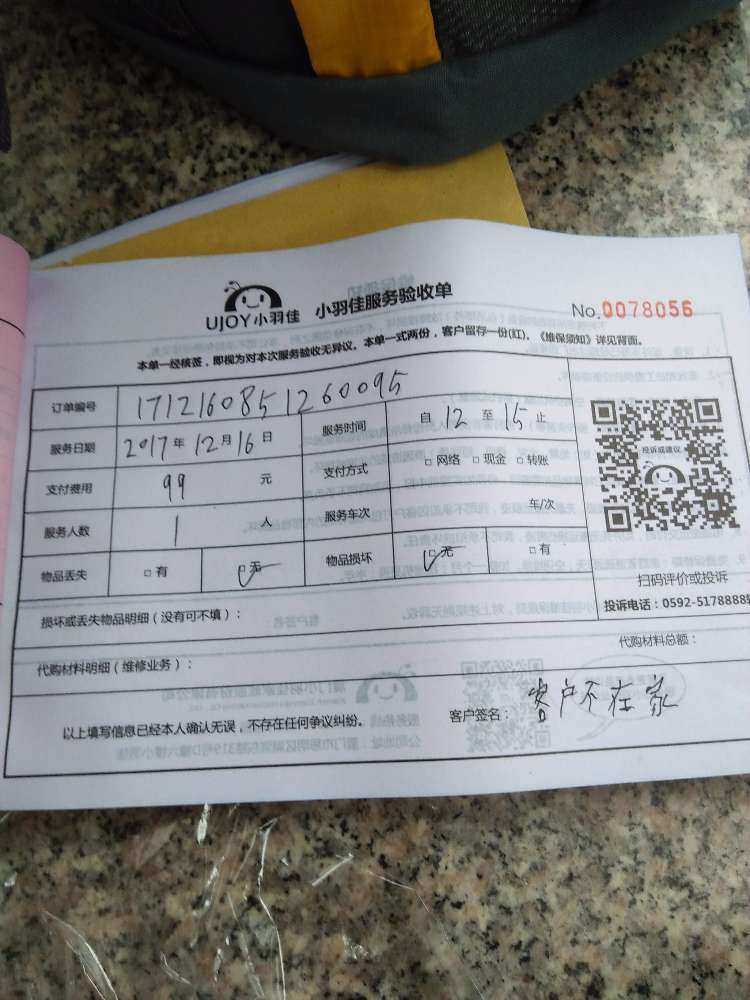 UJOY小羽佳 小羽佳服务验收单 No.0078056
本单一经核签，即视为对本次服务验收无异议。本单一式两份，客户留存一份(红)。《维保须知》详见背面。
订单编号 1712160851260095
服务日期 2017年12月16日 服务时间 自12至15止
支付费用 99 元 支付方式 □网络 □现金 □转账
服务人数 1 人 服务车次 车/次
物品丢失 □有 □无 物品损坏 □无 □有
投诉或建议
扫码评价或投诉
投诉电话：0592-5178888
损坏或丢失物品明细（没有可不填）：
代购材料明细（维修业务）： 代购材料总额：
以上填写信息已经本人确认无误，不存在任何争议纠纷。 客户签名： 客户不在家